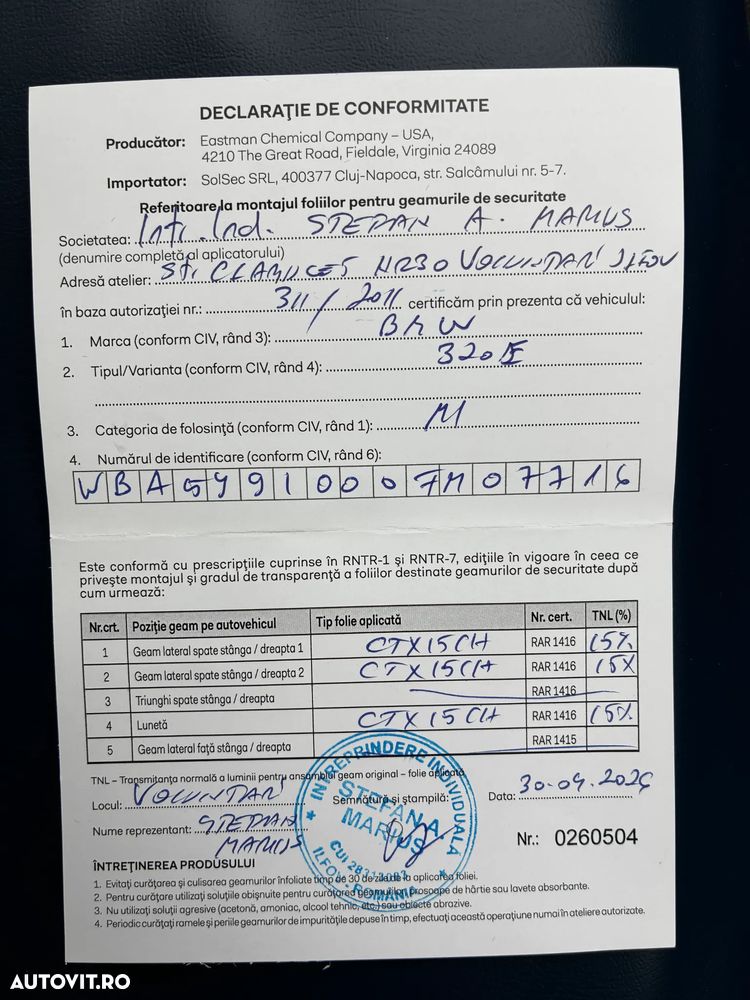 DECLARAȚIE DE CONFORMITATE
Producător: Eastman Chemical Company – USA,
4210 The Great Road, Fieldale, Virginia 24089
Importator: SolSec SRL, 400377 Cluj-Napoca, str. Salcâmului nr. 5-7.
Referitoare la montajul foliilor pentru geamurile de securitate
Societatea: Intr. Ind. STEFAN A. MARIUS
(denumire completă al aplicatorului)
Adresă atelier: Str. NR30 VOLUNTARI ILFOV
în baza autorizației nr.: 311/2011 certificăm prin prezenta că vehiculul:
1. Marca (conform CIV, rând 3): BMW
2. Tipul/Varianta (conform CIV, rând 4): 320E
3. Categoria de folosință (conform CIV, rând 1): M
4. Numărul de identificare (conform CIV, rând 6):
WBA5Y910007M07716
Este conformă cu prescripțiile cuprinse în RNTR-1 și RNTR-7, edițiile în vigoare în ceea ce
privește montajul și gradul de transparență a foliilor destinate geamurilor de securitate după
cum urmează:
Nr.crt. Poziție geam pe autovehicul Tip folie aplicată Nr. cert. TNL (%)
1 Geam lateral spate stânga / dreapta 1 CTX15CH RAR 1416 15%
2 Geam lateral spate stânga / dreapta 2 CTX15CH RAR 1416 15%
3 Triunghi spate stânga / dreapta RAR 1416
4 Lunetă CTX15CH RAR 1416 15%
5 Geam lateral față stânga / dreapta RAR 1415
TNL – Transmitanța normală a luminii pentru ansamblul geam original – folie aplicată
Locul: VOLUNTARI Semnătură și ștampilă: Data: 30.04.2026
Nume reprezentant: STEFAN
MARIUS
INTREPRINDERE INDIVIDUALĂ
STEFAN A.
MARIUS
CUI
ILFOV - ROMANIA
Nr.: 0260504
ÎNTREȚINEREA PRODUSULUI
1. Evitați curățarea și culisarea geamurilor înfoliate timp de 30 de zile de la aplicarea foliei.
2. Pentru curățare utilizați soluțiile obișnuite pentru curățarea geamurilor, prosoape de hârtie sau lavete absorbante.
3. Nu utilizați soluții agresive (acetonă, amoniac, alcool tehnic, etc.) sau obiecte abrazive.
4. Periodic curățați ramele și periile geamurilor de impuritățile depuse în timp, efectuați această operațiune numai în ateliere autorizate.
AUTOVIT.RO